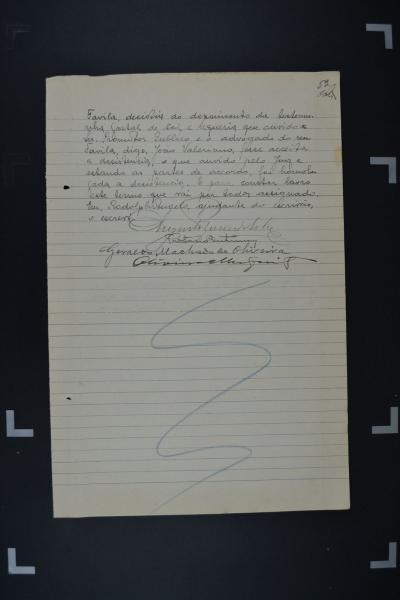 53
Favila, desistia do depoimento da testemu-
nha Gastal de tal, e requeria que ouvido o
sr. Promotor Publico e o advogado do reu
Favila, digo, João Valeriano, fosse acceita
a desistencia, o que ouvido pelo Juiz e
estando as partes de accordo, foi homolo-
gada a desistencia. E para constar lavro
este termo que vai por todos assignado.
Eu, Rodolpho Angelo, ajudante do escrivão,
o escrevi.
Geraldo Machado de Oliveira